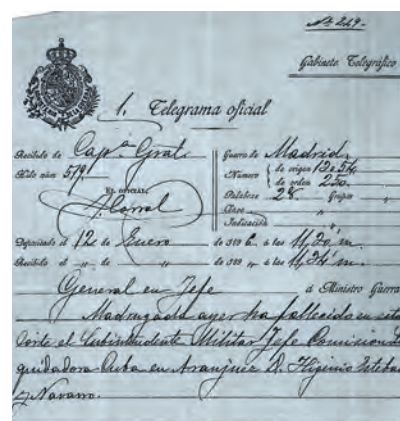 Nº 249-
Gabinete Telegráfico
1. Telegrama oficial
Recibido de Capª Gral.
Hilo núm 579
EL OFICIAL
Corral
Guerra de Madrid,
Número de origen 12054
de orden 250.
Palabras 28. Grupos "
Otros "
Indicación "
Depositado el 12 de Enero de 189 6. á las 11,20' m.
Recibido el " de " de 189 " á las 11,34' m.
General en Jefe á Ministro Guerra
Madrugada ayer ha fallecido en esta
Corte el Subintendente Militar Jefe Comision
quidadora Cuba en Aranjuez D. Higinio Esteba
y Navarro.